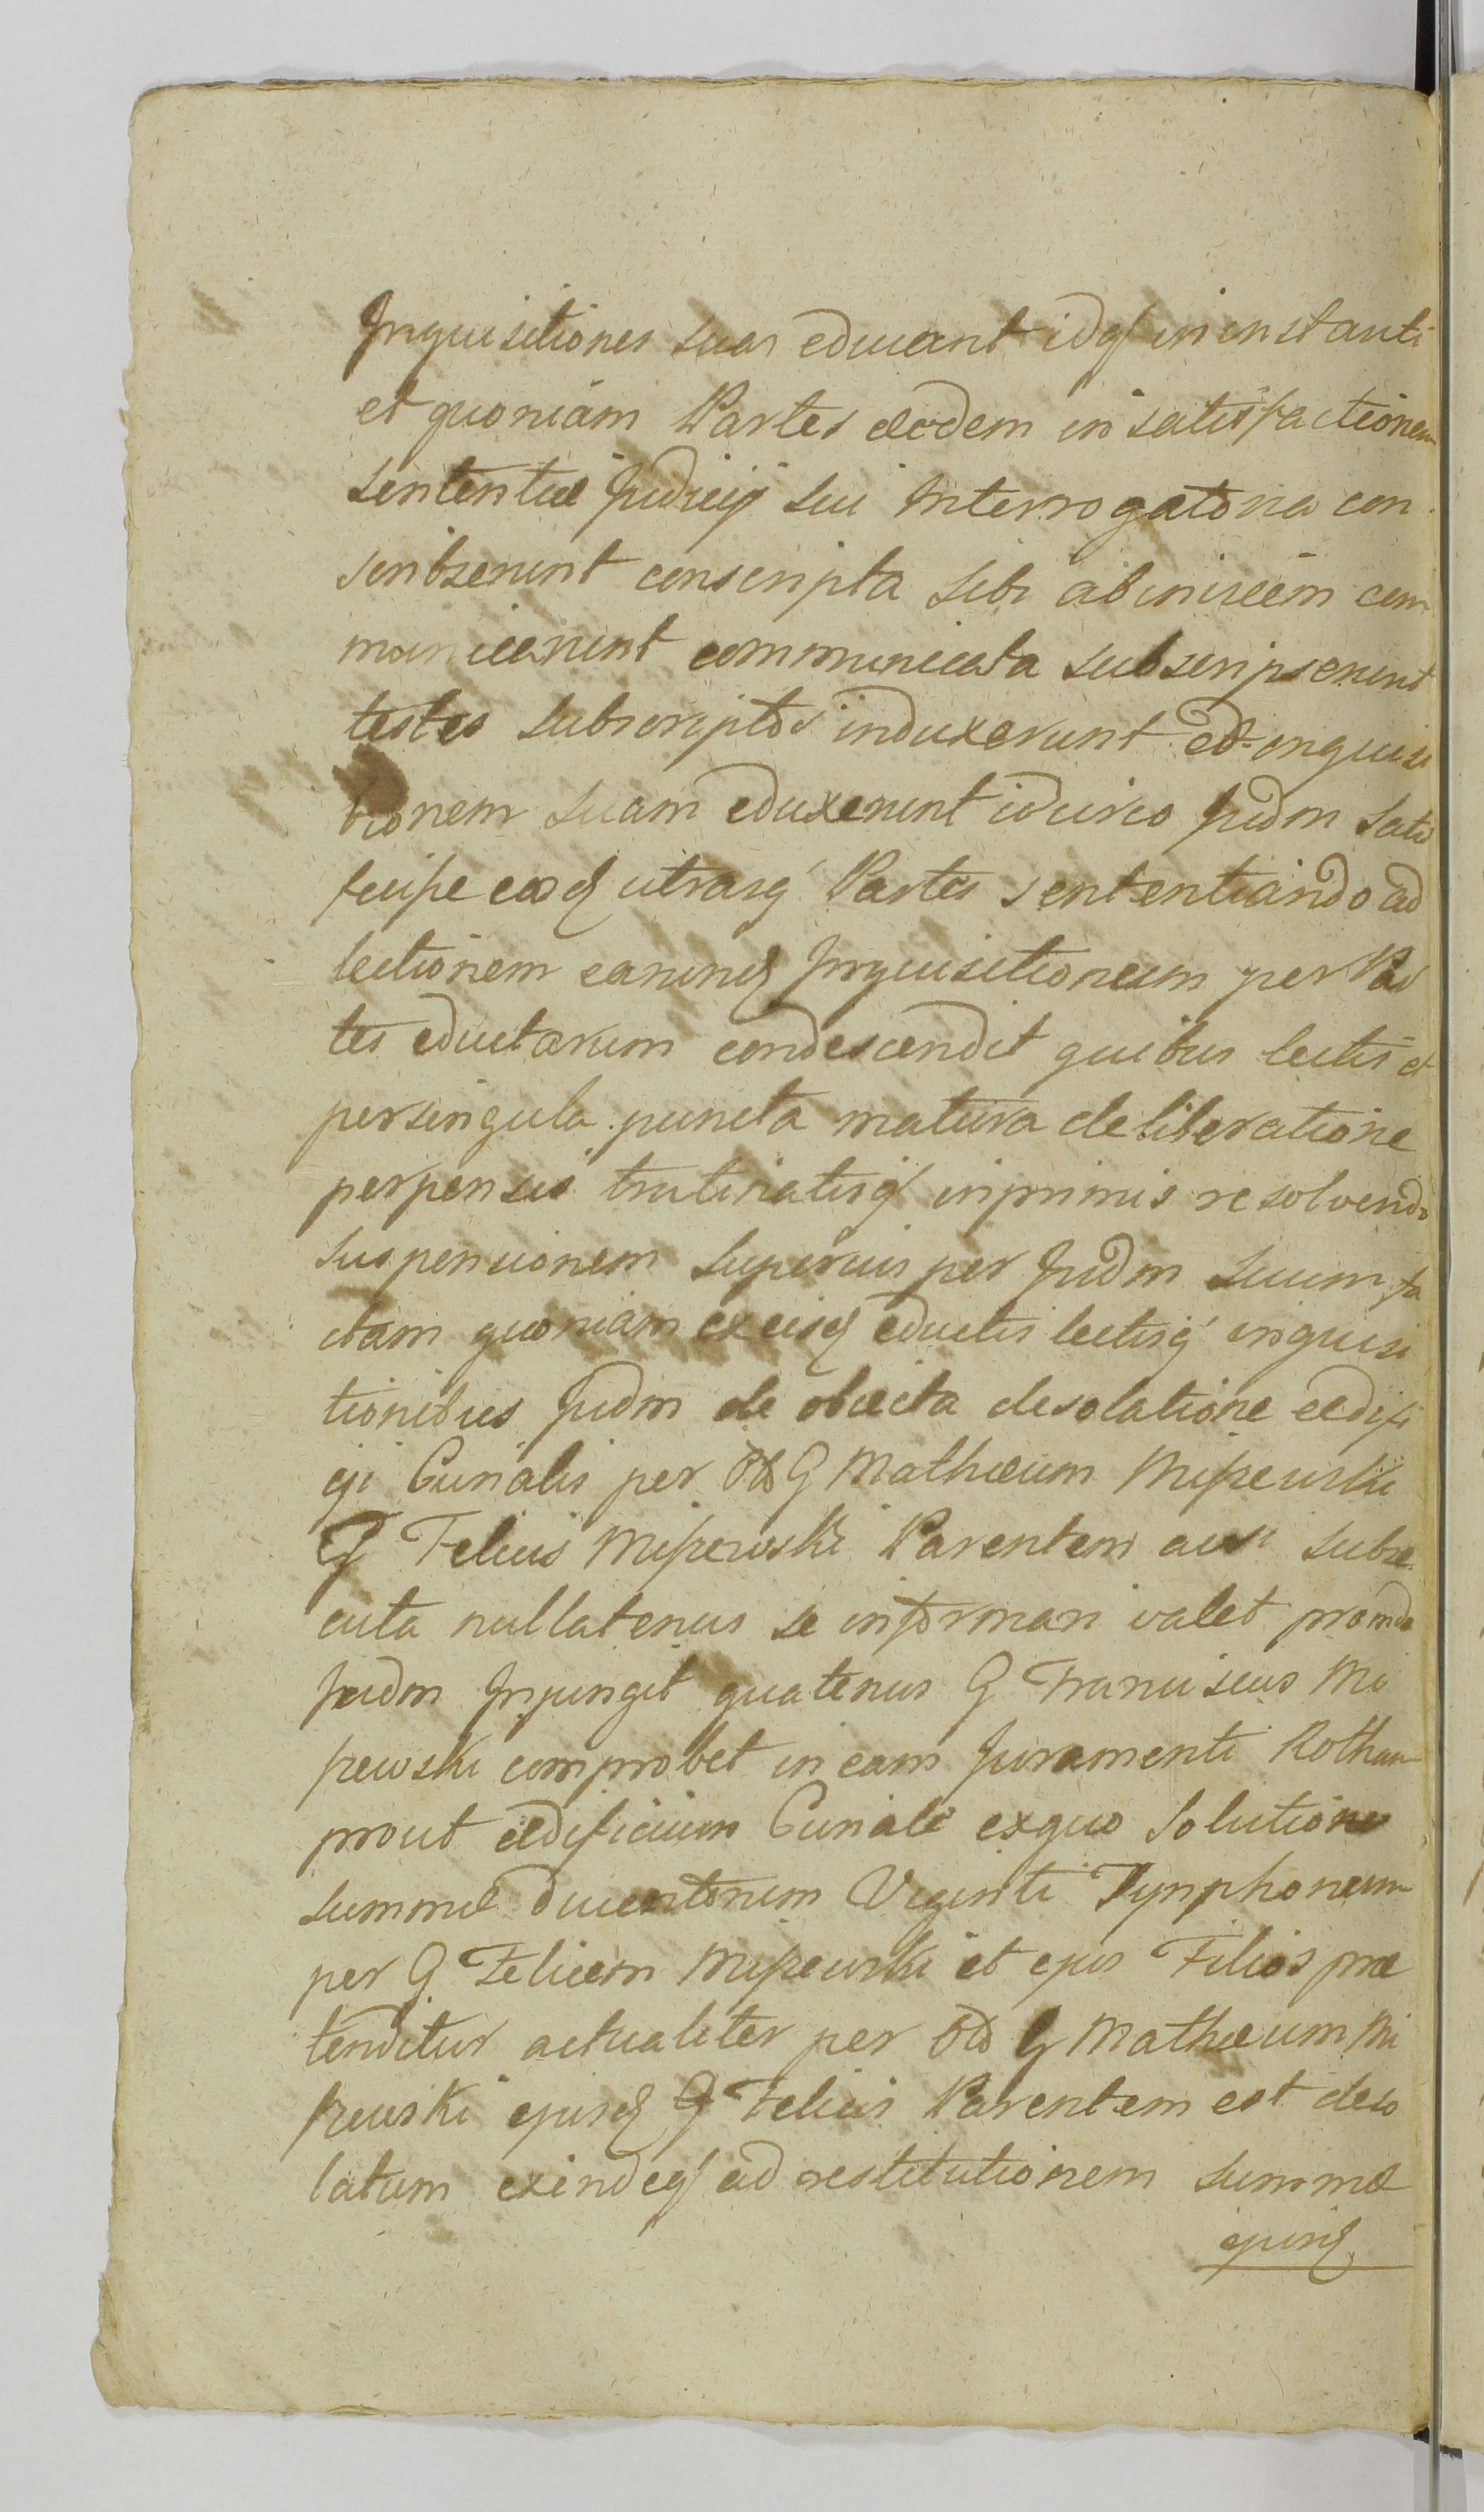 Inquisitiones suas educant idq in instanti
et quoniam Partes eædem in satisfactionem
sententiæ Judicij sui Interrogatoria con
scribserunt conscripta sibi abinvicem com
municarunt communicata subscripserunt
testes subscriptos induxerunt et inquisi
tionem suam eduxerunt idcirco Judm satis
fecisse easq utrasq Partes sententiando ad
lectionem earunq Inquisitionum per Par
tes eductarum condescendit quibus lectis et
persingula puncta matura deliberatione
perpensis trutinatisq inprimis resolvendo
suspensionem superius per Judm suum fa
ctam quoniam ex eisq eductis lectisq inquisi
tionibus Judm de obiecta desolatione ædifi
cji Curialis per Od G Mathæum Miszewski
G Felicis Miszewski Parentem subse
cuta nullatenus se informari valet proinde
Judm Injungit quatenus G Franciscus Mi
szewski comprobet in eam Juramenti Rotham
prout ædificium Curiale exquo solutione
summæ ducentorum Viginti Tynphonum
per G Felicem Miszewski et ejus Filios præ
tenditur actualiter per Od G Mathæum Mi
szewski ejusq G Felicis Parentem est deso
latum exindeq ad restitutionem summæ
ejusq